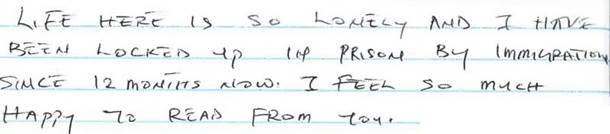 LIFE HERE IS SO LONELY AND I HAVE
BEEN LOCKED UP IN PRISON BY IMMIGRATION
SINCE 12 MONTHS NOW. I FEEL SO MUCH
HAPPY TO READ FROM YOU.